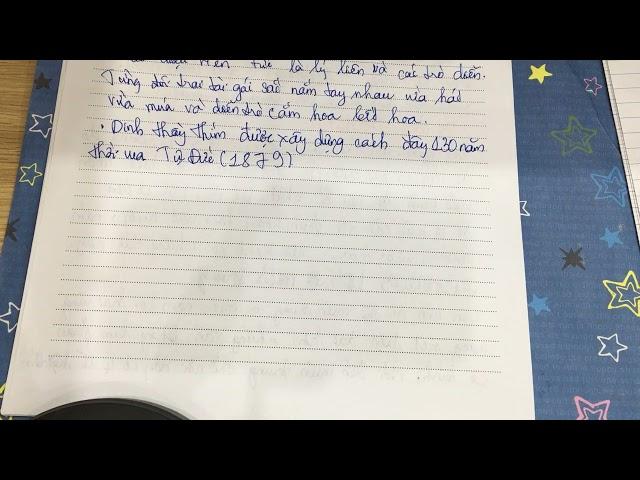 tức là lý liên và các trò diễn.
Từng đôi trai tài gái sắc nắm tay nhau vừa hát
vừa múa và diễn trò cắm hoa kết hoa.
. Dinh thầy thím được xây dựng cách đây 130 năm
thời vua Tự Đức (1879)